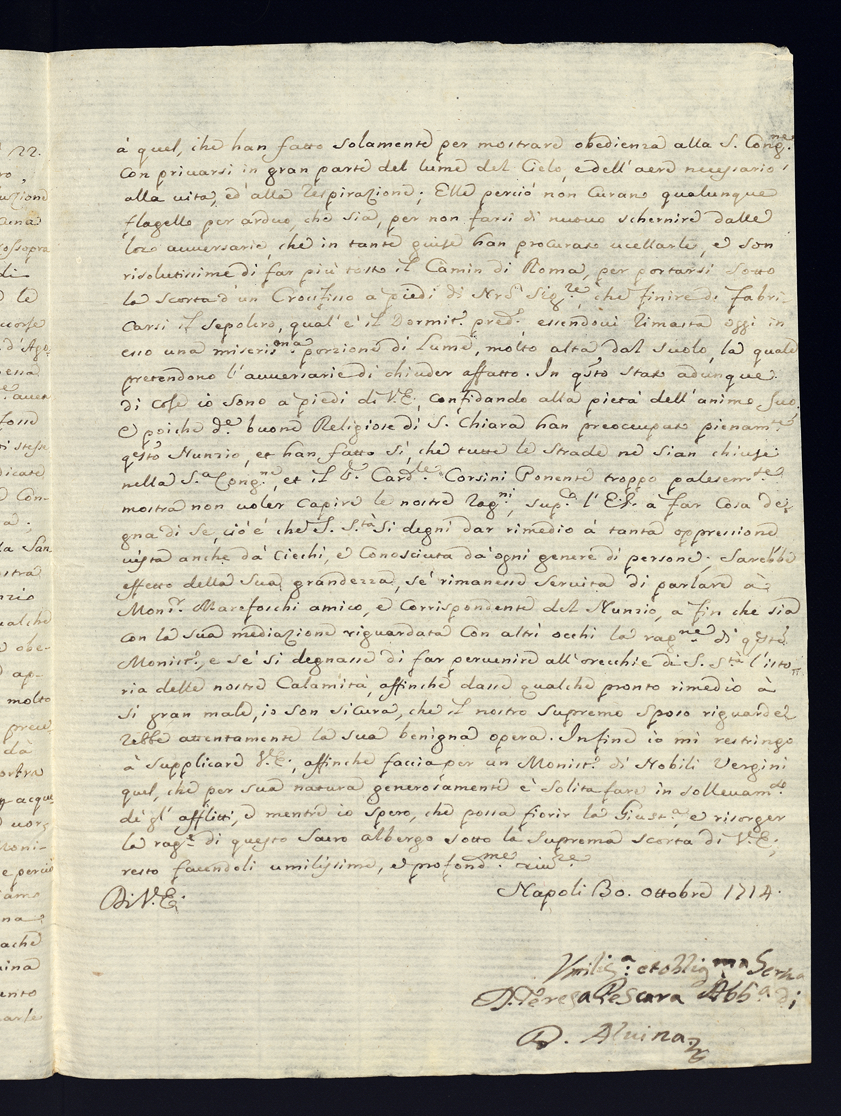 à quel, che han fatto solamente per mostrare obedienza alla S. Cong.ne
con privarsi in gran parte del lume del Cielo, e dell'aere necessario
alla vita, ed'alla respirazione; Elle perciò non curano qualunque
flagello per arduo, che sia, per non farsi di nuovo schernire dalle
loro avversarie che in tante guise han procurato ucellarle, e son
risolutissime di far più tosto il Camin di Roma, per portarsi sotto
la scorta d'un Crocifisso a piedi di Nrō Sig.re, che finire di fabri-
carsi il sepolcro, qual'è il Dormit.o pred.o, essendovi rimasta oggi in
esso una miseris.ma porzione di lume, molto alta dal suolo, la quale
pretendono l'avversarie di chiuder affatto. In q̄sto stato adunque
di cose io sono a piedi di V.E. confidando alla pietà dell'animo suo,
e poiche d.e buone Religiose di S. Chiara han preoccupato pienam.te
q̄sto Nunzio, et han fatto sì, che tutte le strade ne sian chiuse
nella S.a Cong.ne, et il S.r Card.le Corsini Ponente troppo palesem.te
mostra non voler capire le nostre rag.ni, sup.co l'E.V. a far cosa de-
gna di se, ciò è che S. S.tà si degni dar rimedio à tanta oppressione
vista anche dà ciechi, e conosciuta da ogni genere di persone; Sarebbe
effetto della sua grandezza, se rimanesse servita di parlare à
Mon.r Marefoschi amico, e corrispondente del Nunzio, a fin che sia
con la sua mediazione riguardata con altri occhi la rag.ne di q̄sto
Monist.o, e se si degnasse di far pervenire all'orecchie di S. S.tà l'isto-
ria delle nostre Calamità, affinche dasse qualche pronto rimedio à
sì gran male, io son sicura, che il nostro supremo Sposo riguarde-
rebbe attentamente la sua benigna opera. Infine io mi restringo
à supplicare V.E., affinche faccia per un Monist.o di Nobili Vergini
quel, che per sua natura generosamente è solita fare in sollevam.to
de gl'afflitti, e mentre io spero, che possa fiorir la Giust.a, e risorger
la rag.e di questo sacro albergo sotto la suprema scorta di V.E.,
resto facendoli umilissime, e profond.me riv.ze
Di V.E.
Napoli 30. Ottobre 1714.
Umiliss.a et oblig.ma Serva
D. Teresa Pescara Abb.a di
D. Alvina